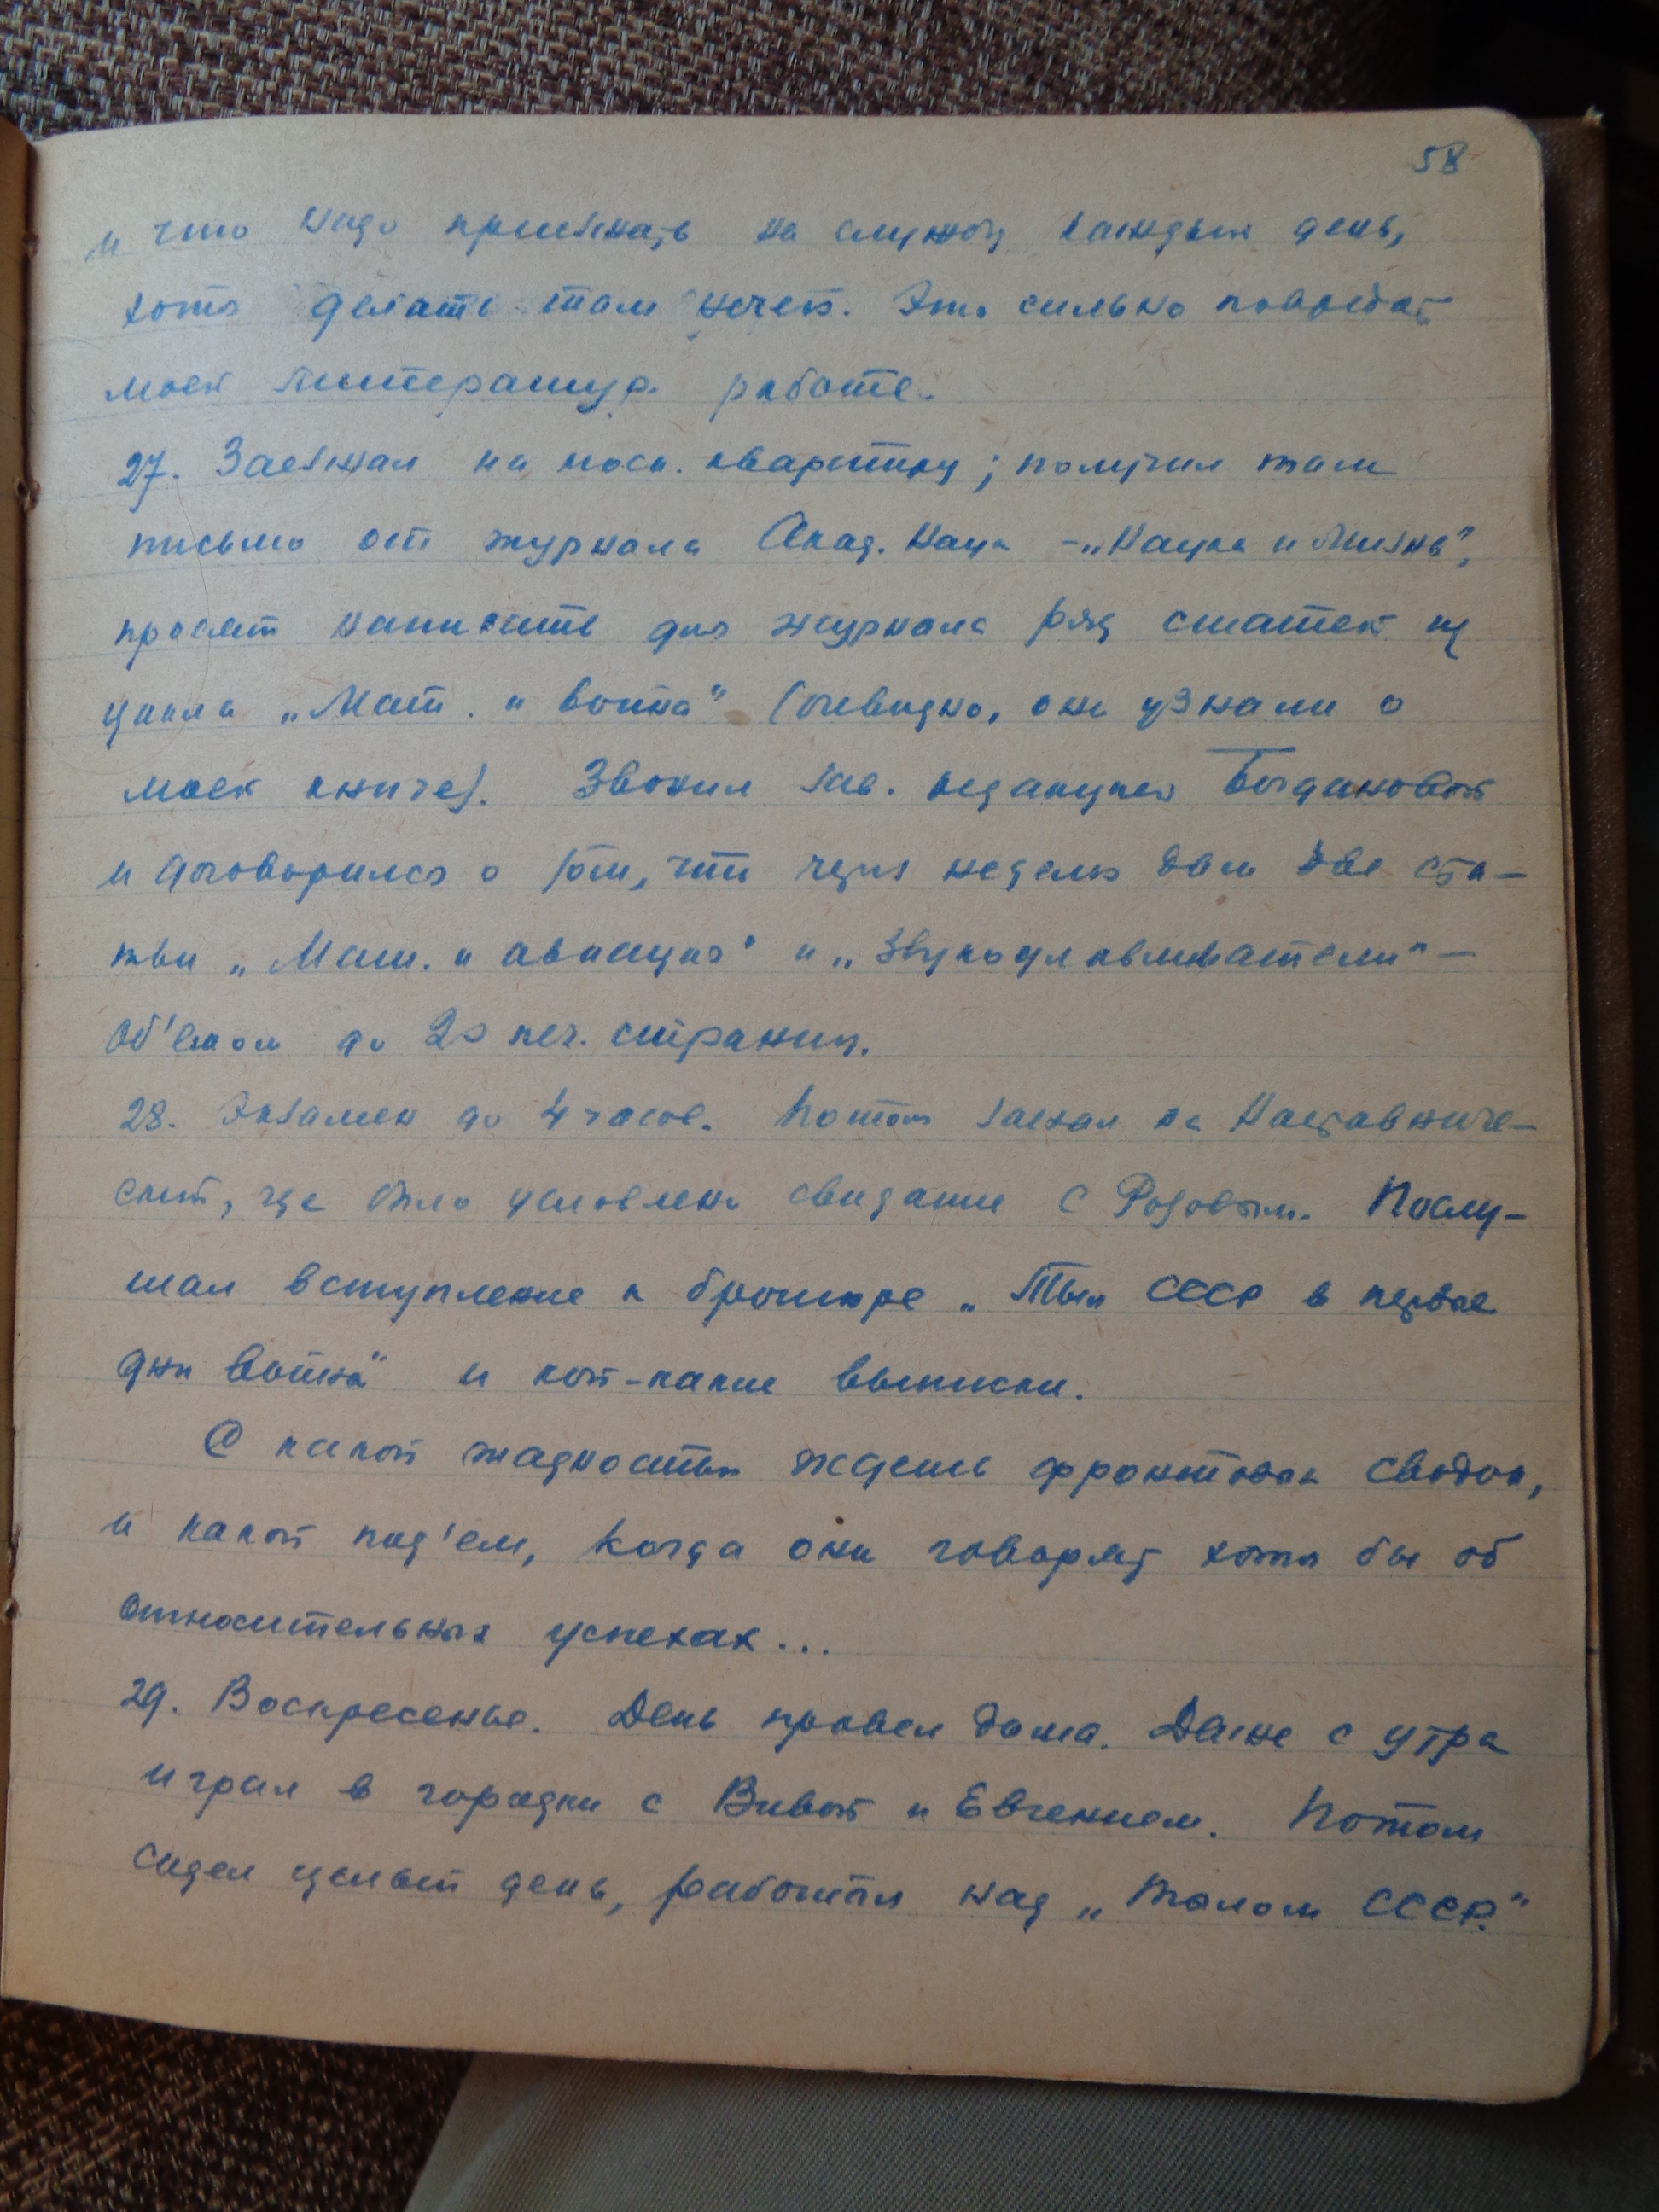 58
и что надо приезжать на службу каждый день,
хотя делать там нечего. Это сильно повредит
моей литературн. работе.
27. Заезжал на моск. квартиру; получил там
письмо от журнала Акад. Наук – „Наука и жизнь",
просят написать для журнала ряд статей из
цикла „Мат. и война" (очевидно, они узнали о
моей книге). Звонил зав. редакцией Богдановой
и договорился о том, что через неделю дам две ста-
тьи „Мат. и авиация" и „Звукоулавливатели" –
об'емом до 20 печ. страниц.
28. Экзамен до 4 часов. Потом заехал на Наставниче-
ский, где было условлено свидание с Родовым. Послу-
шал вступление к брошюре „Тыл СССР в первые
дни войны" и кой-какие выписки.
С какой жадностью ждешь фронтовых сводок,
и какой под'ем, когда они говорят хотя бы об
относительных успехах...
29. Воскресенье. День провел дома. Даже с утра
играл в городки с Вивой и Евгением. Потом
сидел целый день, работал над „Тылом СССР."